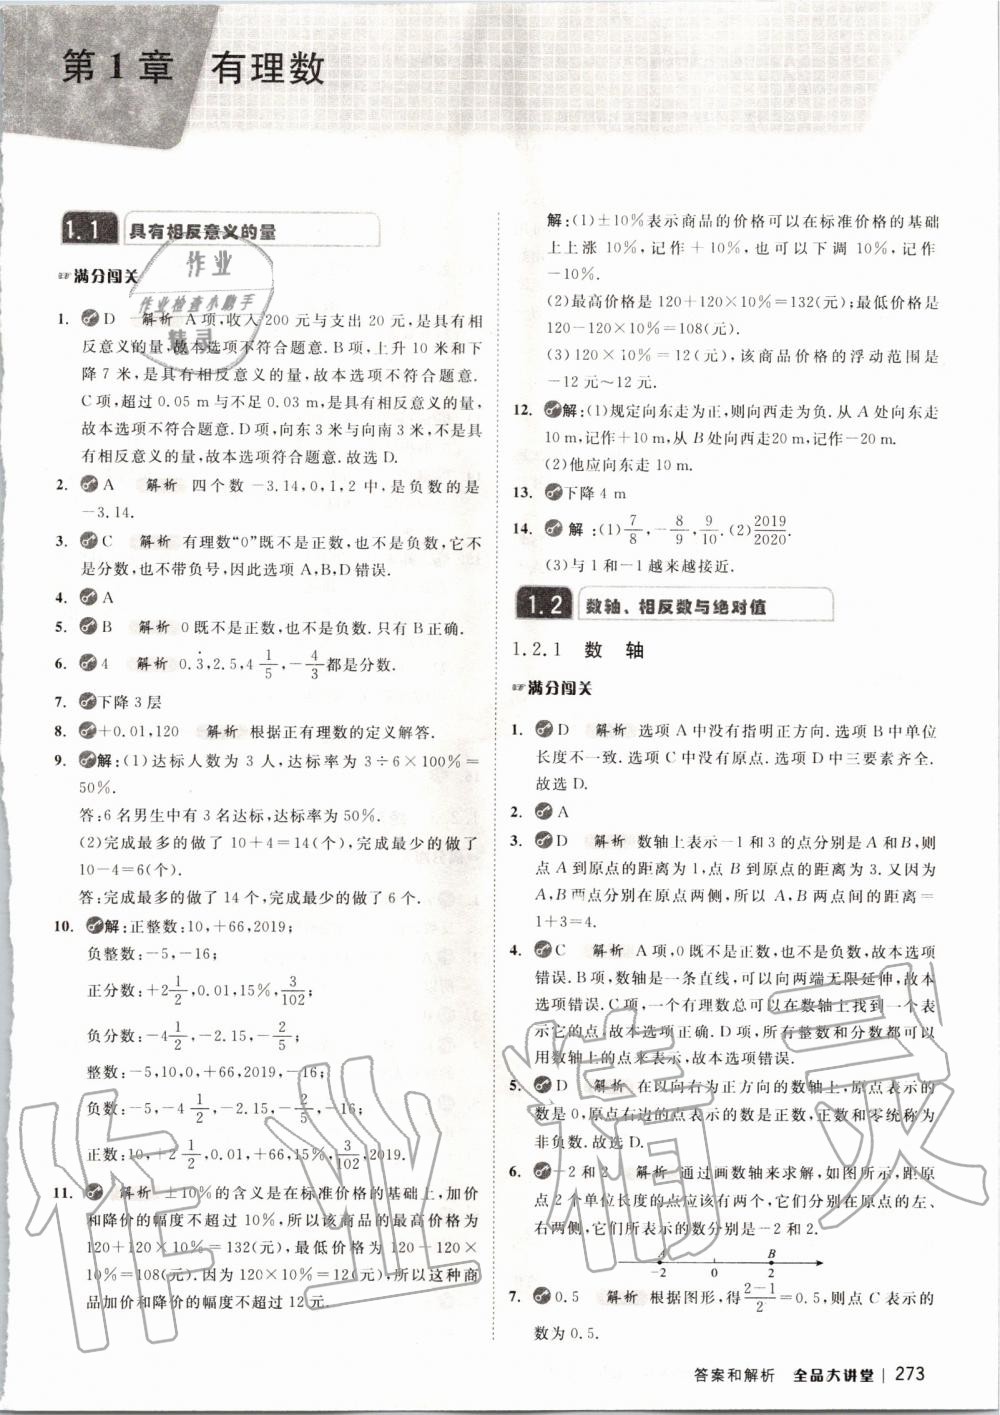 第1章 有理数
1.1 具有相反意义的量
满分闯关
1. D 解析 A项,收入200元与支出20元,是具有相
反意义的量,故本选项不符合题意.B项,上升10米和下
降7米,是具有相反意义的量,故本选项不符合题意.
C项,超过0.05 m与不足0.03 m,是具有相反意义的量,
故本选项不符合题意.D项,向东3米与向南3米,不是具
有相反意义的量,故本选项符合题意.故选D.
2. A 解析 四个数-3.14,0,1,2中,是负数的是
-3.14.
3. C 解析 有理数“0”既不是正数,也不是负数,它不
是分数,也不带负号,因此选项A,B,D错误.
4. A
5. B 解析 0既不是正数,也不是负数.只有B正确.
6. 4 解析 0.3̇,2.5,4 1/5,-4/3都是分数.
7. 下降3层
8. +0.01,120 解析 根据正有理数的定义解答.
9. 解:(1)达标人数为3人,达标率为3÷6×100%=
50%.
答:6名男生中有3名达标,达标率为50%.
(2)完成最多的做了10+4=14(个),完成最少的做了
10-4=6(个).
答:完成最多的做了14个,完成最少的做了6个.
10. 解:正整数:10,+66,2019;
负整数:-5,-16;
正分数:+2 1/2,0.01,15%,3/102;
负分数:-4 1/2,-2.15,-2/5;
整数:-5,10,0,+66,2019,-16;
负数:-5,-4 1/2,-2.15,-2/5,-16;
正数:10,+2 1/2,0.01,+66,15%,3/102,2019.
11. 解析 ±10%的含义是在标准价格的基础上,加价
和降价的幅度不超过10%,所以该商品的最高价格为
120+120×10%=132(元),最低价格为120-120×
10%=108(元).因为120×10%=12(元),所以这种商
品加价和降价的幅度不超过12元.
解:(1)±10%表示商品的价格可以在标准价格的基础
上上涨10%,记作+10%,也可以下调10%,记作
-10%.
(2)最高价格是120+120×10%=132(元);最低价格是
120-120×10%=108(元).
(3)120×10%=12(元),该商品价格的浮动范围是
-12元~12元.
12. 解:(1)规定向东走为正,则向西走为负.从A处向东走
10 m,记作+10 m,从B处向西走20 m,记作-20 m.
(2)他应向东走10 m.
13. 下降4 m
14. 解:(1)7/8,-8/9,9/10.(2)2019/2020.
(3)与1和-1越来越接近.
1.2 数轴、相反数与绝对值
1.2.1 数 轴
满分闯关
1. D 解析 选项A中没有指明正方向.选项B中单位
长度不一致.选项C中没有原点.选项D中三要素齐全.
故选D.
2. A
3. D 解析 数轴上表示-1和3的点分别是A和B,则
点A到原点的距离为1,点B到原点的距离为3.又因为
A,B两点分别在原点两侧,所以A,B两点间的距离=
1+3=4.
4. C 解析 A项,0既不是正数,也不是负数,故本选项
错误.B项,数轴是一条直线,可以向两端无限延伸,故本
选项错误.C项,一个有理数总可以在数轴上找到一个表
示它的点,故本选项正确.D项,所有整数和分数都可以
用数轴上的点来表示,故本选项错误.
5. D 解析 在以向右为正方向的数轴上,原点表示的
数是0,原点右边的点表示的数是正数,正数和零统称为
非负数.故选D.
6. -2和2 解析 通过画数轴来求解,如图所示,距原
点2个单位长度的点应该有两个,它们分别在原点的左、
右两侧,它们所表示的数分别是-2和2.
A B
-2 0 2
7. 0.5 解析 根据图形,得(2-1)/2=0.5,则点C表示的
数为0.5.
答案和解析 全品大讲堂 | 273
作业
作业检查小助手
精灵
作业精灵